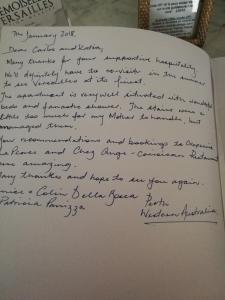 EMOISE
VERSAILLES
7th January 2018,
Dear Carlos and Katia,
Many thanks for your supportive hospitality.
We'll definitely have to re-visit in the summer
to see Versailles at its finest.
The apartment is very well situated with
beds and fantastic shower. The stairs were a
little too much for my Mother to handle, but
managed them.
Your recommendations and bookings to
La and Chez Ange - Corsican Restaurant
are amazing.
Many thanks and hope to see you again.
& Colin Della Bosca Perth
Patricia Western Australia